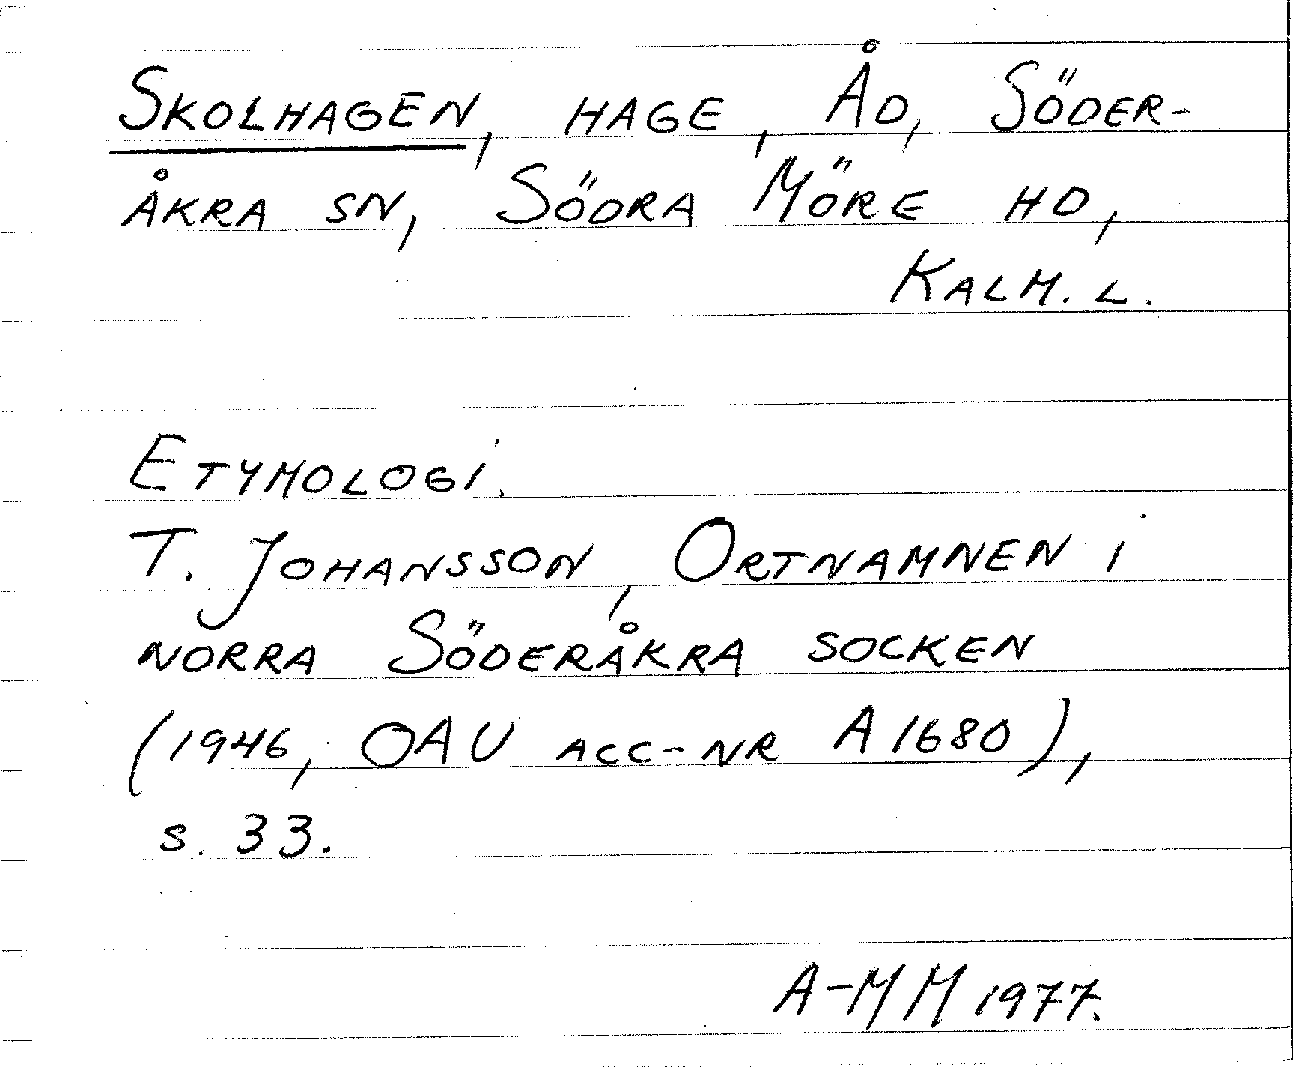 SKOLHAGEN, HAGE, ÅD, SÖDER-
ÅKRA SN, SÖDRA MÖRE HD,
KALM. L.
ETYMOLOGI.
T. JOHANSSON, ORTNAMNEN I
NORRA SÖDERÅKRA SOCKEN
(1946, OAU ACC-NR A 1680),
S. 33.
A-MM 1977.